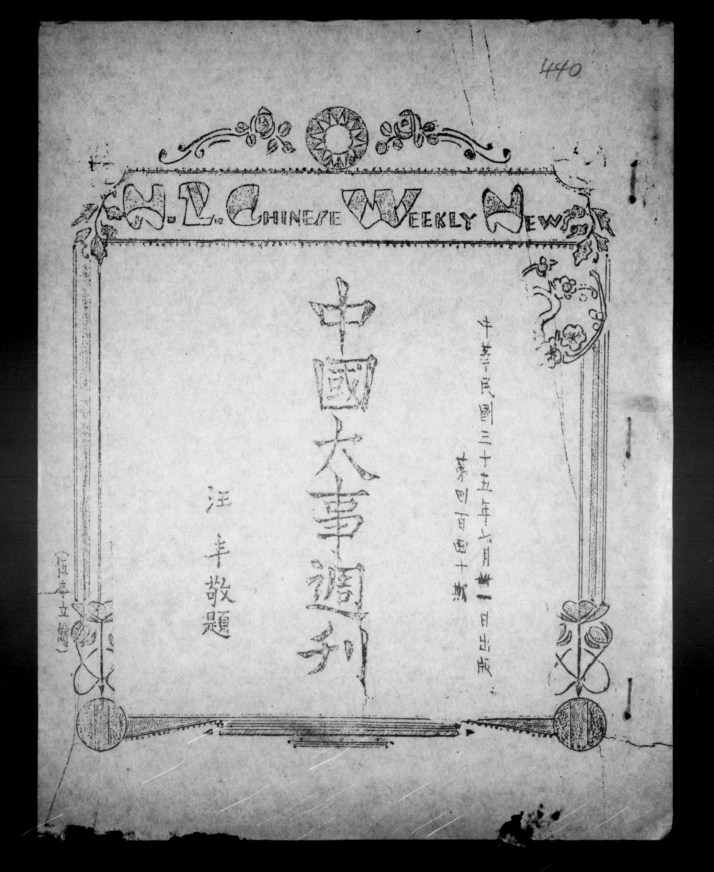 440
N.Z. CHINESE WEEKLY NEWS
中華民國三十五年六月 一日出版
第四百四十期
中國大事週刊
汪 敬題